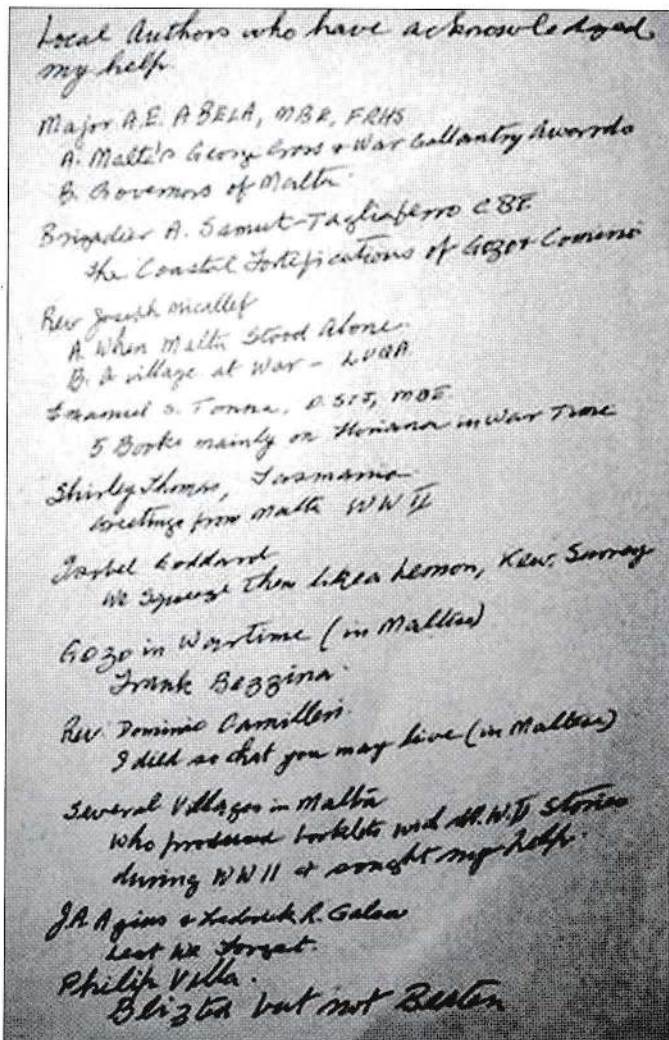 Local Authors who have acknowledged
my help
Major A.E. ABELA, MBE, FRHS
A. Malta's George Cross & War Gallantry Awards
B. Governors of Malta
Brigadier A. Samut-Tagliaferro CBE
The Coastal Fortifications of Gozo & Comino
Rev Joseph Micallef
A When Malta Stood Alone
B. A village at War - LUQA
Emanuel S. Tonna, MBE
5 Books mainly on Floriana in War Time
Shirley Thomas, Tasmania
Greetings from Malta WW II
Isobel Goddard
We Squeeze them like a Lemon, Kew, Surrey
Gozo in Wartime (in Maltese)
Frank Bezzina
Rev. Dominic Camilleri
I died so that you may live (in Maltese)
Several Villages in Malta
who produced booklets with W.W.II Stories
during WW II & sought my help.
J.A Agius & Frederick R. Galea
Lest We Forget.
Philip Vella.
Blizted but not Beaten